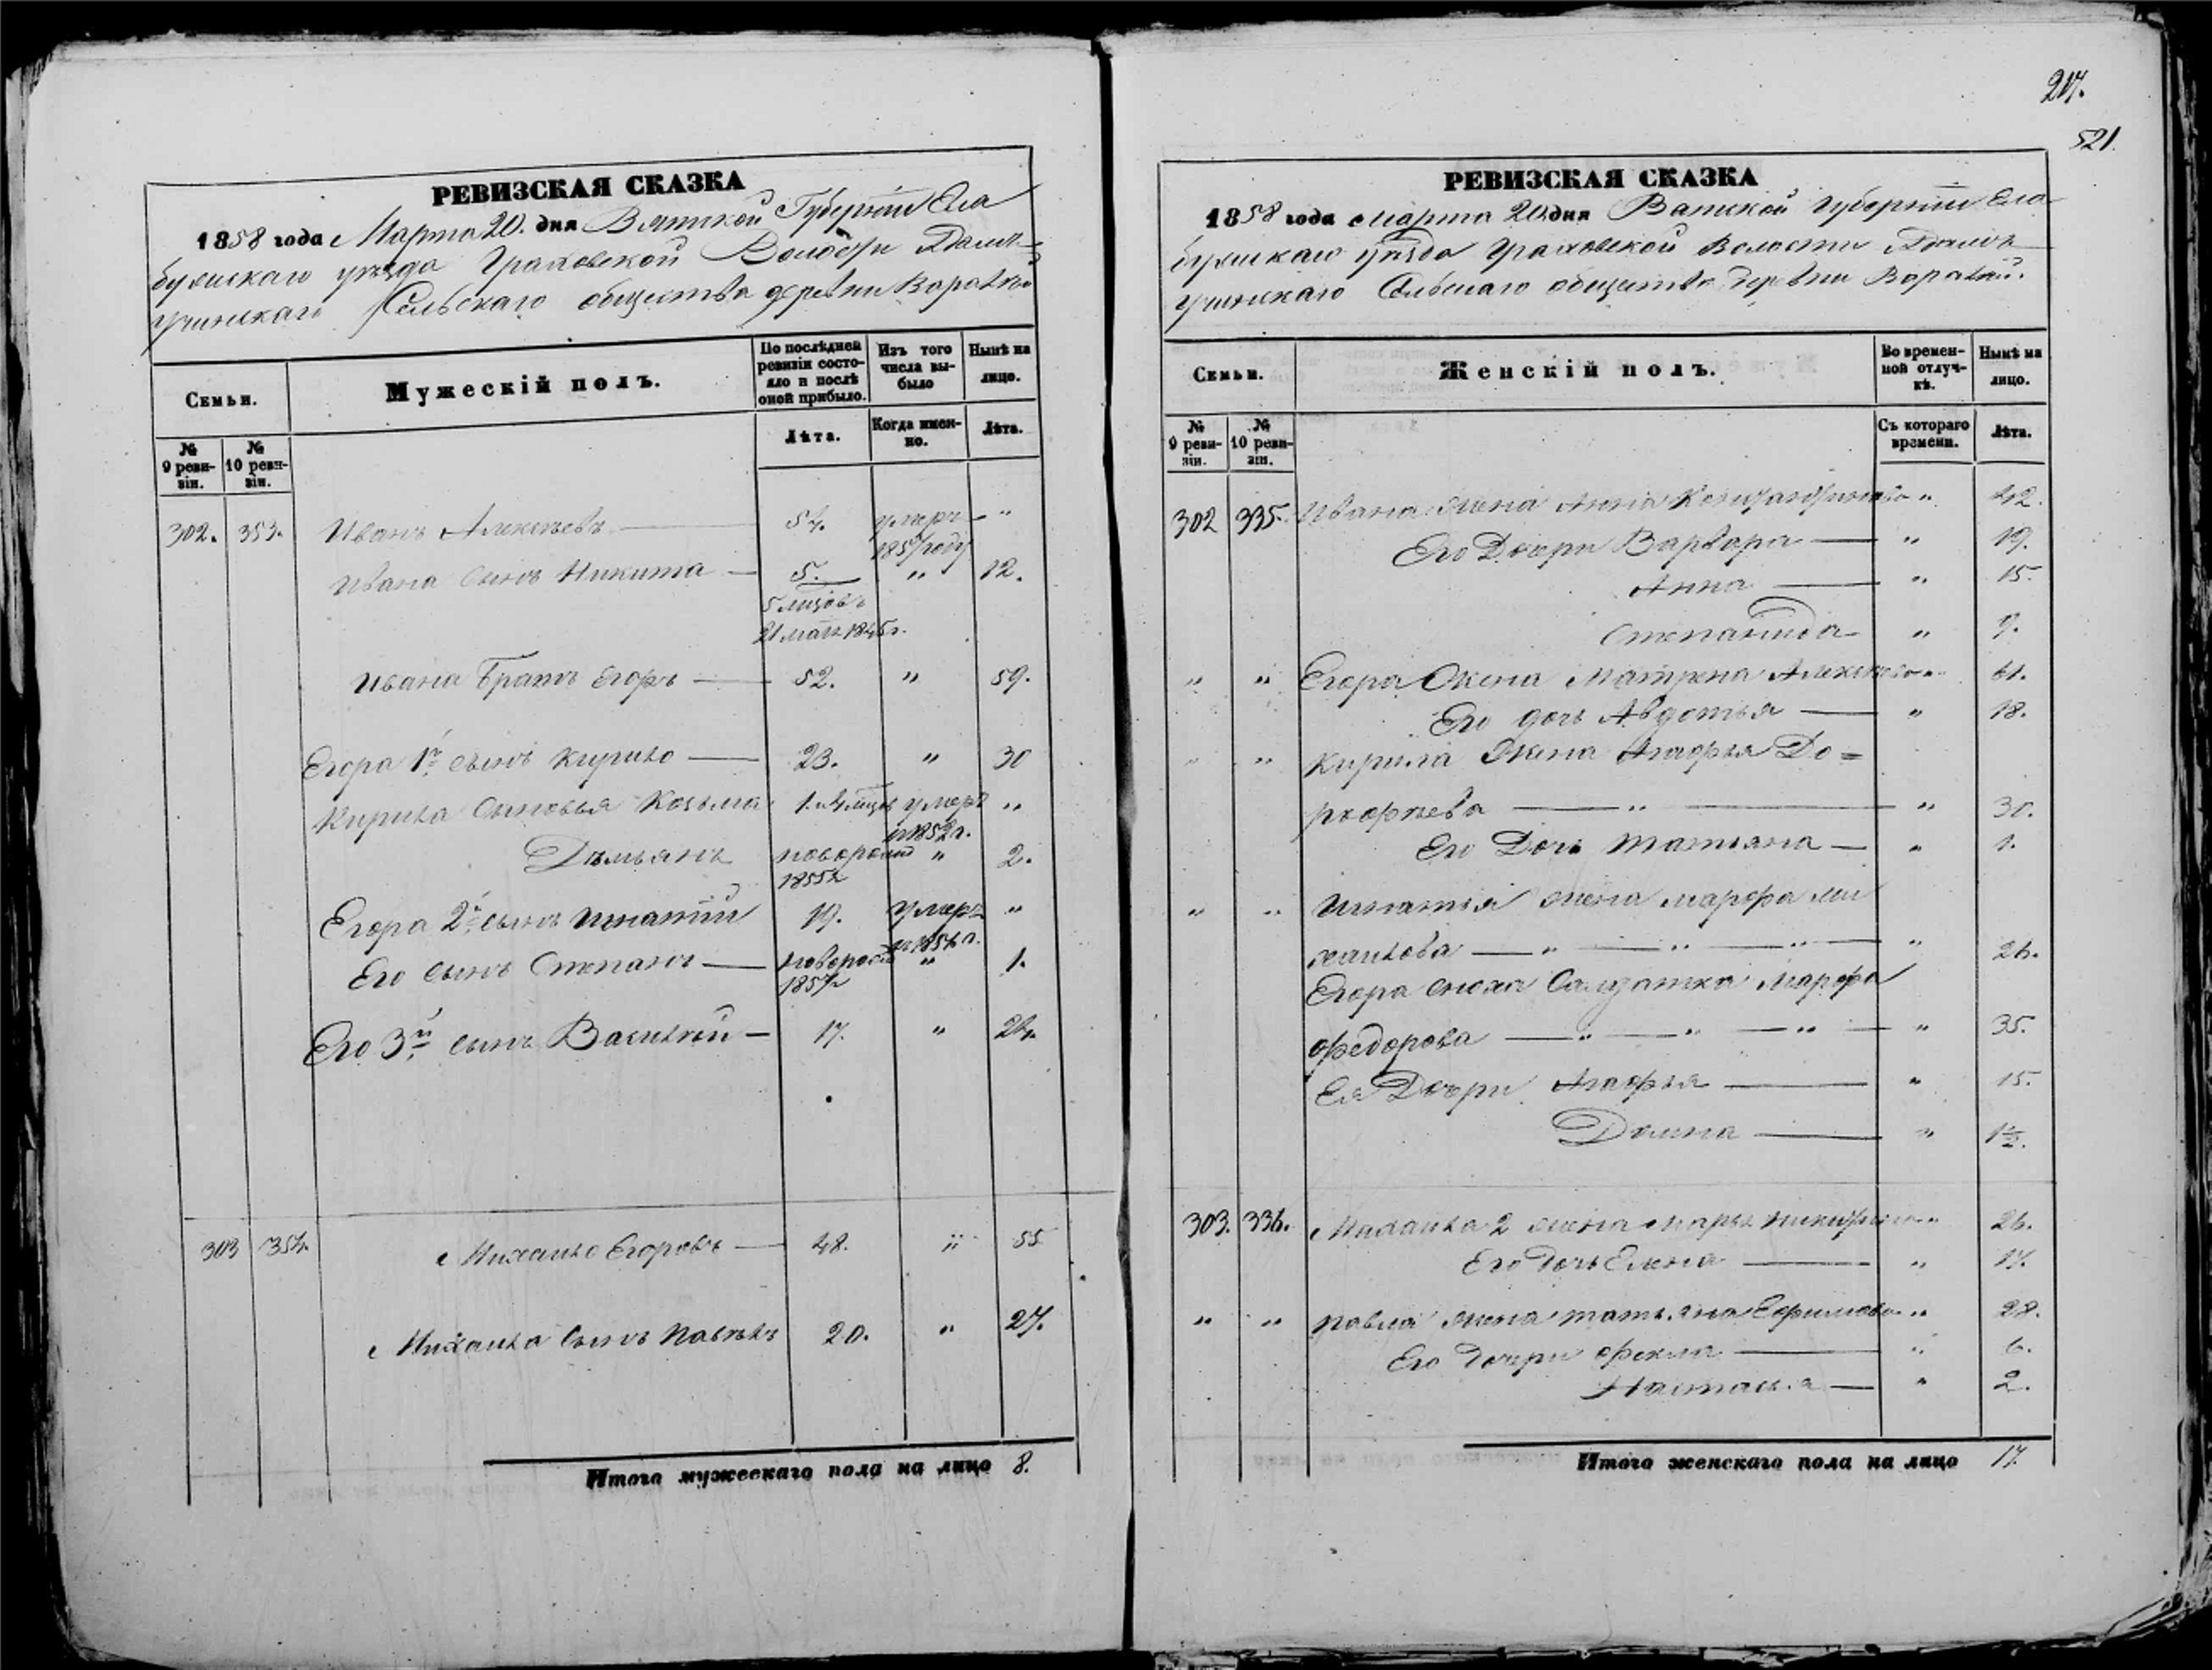 РЕВИЗСКАЯ СКАЗКА
1858 года Марта 20. дня Вятской Губерніи Ела
бужскаго уѣзда Граховской Волости
Сельскаго общества деревни
Семьи.
Мужескій полъ.
По послѣдней ревизіи состояло и послѣ оной прибыло.
Изъ того числа выбыло
Нынѣ на лицо.
№ 9 ревизіи.
№ 10 ревизіи.
Лѣта.
Когда именно.
Лѣта.
302. 353. Иванъ Алексѣевъ 57. умеръ "
1857 году
Ивана Сынъ Никита 5. " 12.
21 1845 г.
Ивана Братъ Егоръ 52. " 59.
Егора 1й сынъ Кирило 23. " 30
Кирила Сыновья Козьма 1. умеръ "
1852 г.
Демьянъ новорожд " 2.
1855
Егора 2й сынъ Игнатій 19. умеръ "
Его сынъ Степанъ новорожд " 1.
1857
Его 3й сынъ Василій 17. " 24.
303 354. Михайло Егоровъ 48. " 55
Михайла Сынъ Павелъ 20. " 27.
Итого мужескаго пола на лицо 8.
217.
521.
РЕВИЗСКАЯ СКАЗКА
1858 года Марта 20 дня Вятской Губерніи Ела
бужскаго уѣзда Граховской Волости
Сельскаго общества деревни
Семьи.
Женскій полъ.
Во временной отлучкѣ.
Нынѣ на лицо.
№ 9 ревизіи.
№ 10 ревизіи.
Съ котораго времени.
Лѣта.
302 335. Ивана жена Анна " 42.
Его Дочери Варвара " 19.
Анна " 15.
Степанида " 9.
" " Егора Жена Матрена Алексѣева " 61.
Его дочь Авдотья " 18.
" " Кирила Жена Агафья До=
рофѣева " " 30.
Его Дочь Татьяна " 1.
" " Игнатія жена Марфа Ми
хайлова " " " " 26.
Егора сноха Салдатка Марфа
Федорова " " " " 35.
Ея Дочери Агафья " 15.
Домна " 1½.
303. 336. Михайла 2 жена Марья " 26.
Его дочь Елена " 17.
" " Павла жена Татьяна Ефимова " 28.
Его дочери Фекла " 6.
Настасья " 2.
Итого женскаго пола на лицо 17.